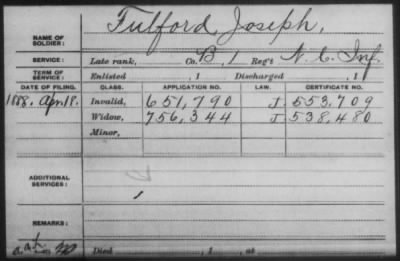 NAME OF SOLDIER: Fulford, Joseph,
SERVICE: Late rank, Co. B, 1 Reg't N. C. Inf.
TERM OF SERVICE: Enlisted , 1 Discharged , 1
DATE OF FILING. CLASS. APPLICATION NO. LAW. CERTIFICATE NO.
1888, Apr. 18. Invalid, 651,790 J. 553,709
Widow, 756,344 J. 538,480
Minor,
ADDITIONAL SERVICES:
REMARKS:
Died , 1 , at